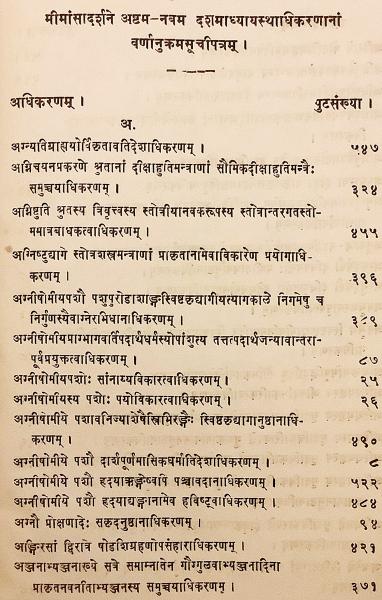 मीमांसादर्शने अष्टम-नवम दशमाध्यायस्थाधिकरणानां
वर्णानुक्रमसूचपित्रम् ।
अधिकरणम् । पुटसंख्या ।
अ.
अग्न्यतिग्राह्ययोर्विकृतावतिदेशाधिकरणम् । ५४७
अग्निचयनप्रकरणे श्रुतानां दीक्षाहुतिमन्त्राणां सौमिकदीक्षाहुतिमन्त्रैः
समुच्चयाधिकरणम् । ३२४
अग्निष्टुति श्रुतस्य त्रिवृत्त्वस्य स्तोत्रीयानवकरूपस्य स्तोत्रान्तरगतस्तो-
ममात्रबाधकत्वाधिकरणम् । ४५५
अग्निष्टुद्यागे स्तोत्रशस्त्रमन्त्राणां प्राकृतानामेवाविकारेण प्रयोगाधि-
करणम् । ३९६
अग्नीषोमीयपशौ पशुपुरोडाशाङ्गस्विष्टकृद्यागीयत्यागकाले निगमेषु च
निर्गुणस्यैवाग्नेरभिधानाधिकरणम् ।
अग्नीषोमीयप्राग्भागवर्तिपदार्थधर्मस्योपांशुत्व तत्तत्पदार्थजन्यावान्तरा-
पूर्वप्रयुक्तत्वाधिकरणम् । ८७
अग्नीषोमीयपशोः सांनाय्यविकारत्वाधिकरणम् । २५
अग्नीषोमीयस्य पशोः पयोविकारत्वाधिकरणम् । २६
अग्नीषोमीये पशावनिज्याशेषैस्त्रिभिरङ्गैः स्विष्टकृद्यागानुष्ठानाधि-
करणम् । ४९०
अग्नीषोमीये पशौ दार्शपूर्णमासिकधर्मातिदेशाधिकरणम् । ८
अग्नीषोमीये पशौ हृदयाद्यङ्गेष्वपि पञ्चावदानाधिकरणम् । ५२२
अग्नीषोमीये पशौ हृदयाद्यङ्गानामेव हविष्ट्वाधिकरणम् । ४८४
अग्नौ प्रोक्षणादेः सकृदनुष्ठानाधिकरणम् । ९४
अङ्गिरसां द्विरात्रे षोडशिग्रहणोपसंहाराधिकरणम् । ४२१
अञ्जनाभ्यञ्जनाख्ये सत्रे समाम्नातेन गौग्गुळवाभ्यञ्जनादिना
प्राकृतनवनीताभ्यञ्जनस्य समुच्चयाधिकरणम् । ३७१